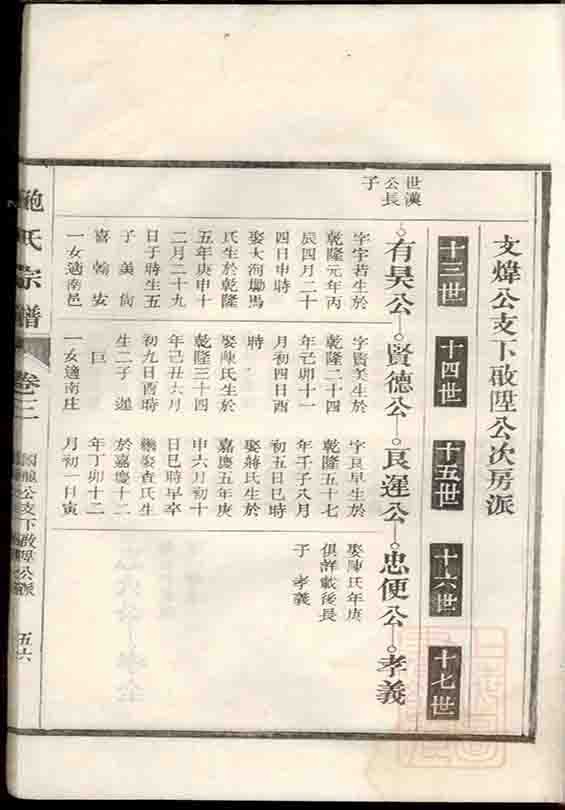 文煒公支下啟陞公次房派
十三世
十四世
十五世
十六世
十七世
世漢
公長
子
有昊公
賢德公
良遲公
忠便公
孝義
字宇若生於
乾隆元年丙
辰四月二十
四日申時
娶大河墈馬
氏生於乾隆
五年庚申十
二月二十九
日子時生五
子 美
喜 翰 安
一女適南邑
字賢美生於
乾隆二十四
年己卯十一
月初四日酉
時
娶陳氏生於
乾隆三十四
年己丑六月
初九日酉時
生二子 遲
巨
一女適南庄
字良早生於
乾隆五十七
年壬子八月
初五日巳時
娶蔣氏生於
嘉慶五年庚
申六月初十
日巳時早卒
繼娶查氏生
於嘉慶十二
年丁卯十二
月初一日寅
娶陳氏年庚
俱詳載後長
子 孝義
鮑氏宗譜
卷三
公支下啟陞公派
五六